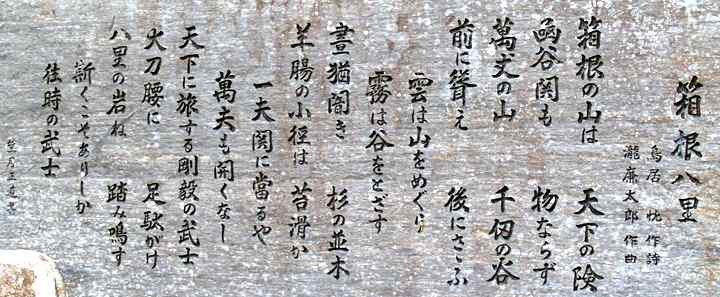 箱根八里
鳥居 忱 作詩
瀧廉太郎 作曲
箱根の山は 天下の険
函谷関も 物ならず
萬丈の山 千仞の谷
前に聳え 後にさゝふ
雲は山をめぐり
霧は谷をとざす
晝猶闇き 杉の並木
羊腸の小徑は 苔滑か
一夫関に當るや
萬夫も開くなし
天下に旅する剛毅の武士
大刀腰に 足駄がけ
八里の岩ね 踏み鳴す
斯くこそありしか
往時の武士